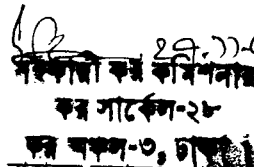 সহকারী কর কমিশনার
কর সার্কেল-২৮
কর অঞ্চল-৩, ঢাকা।